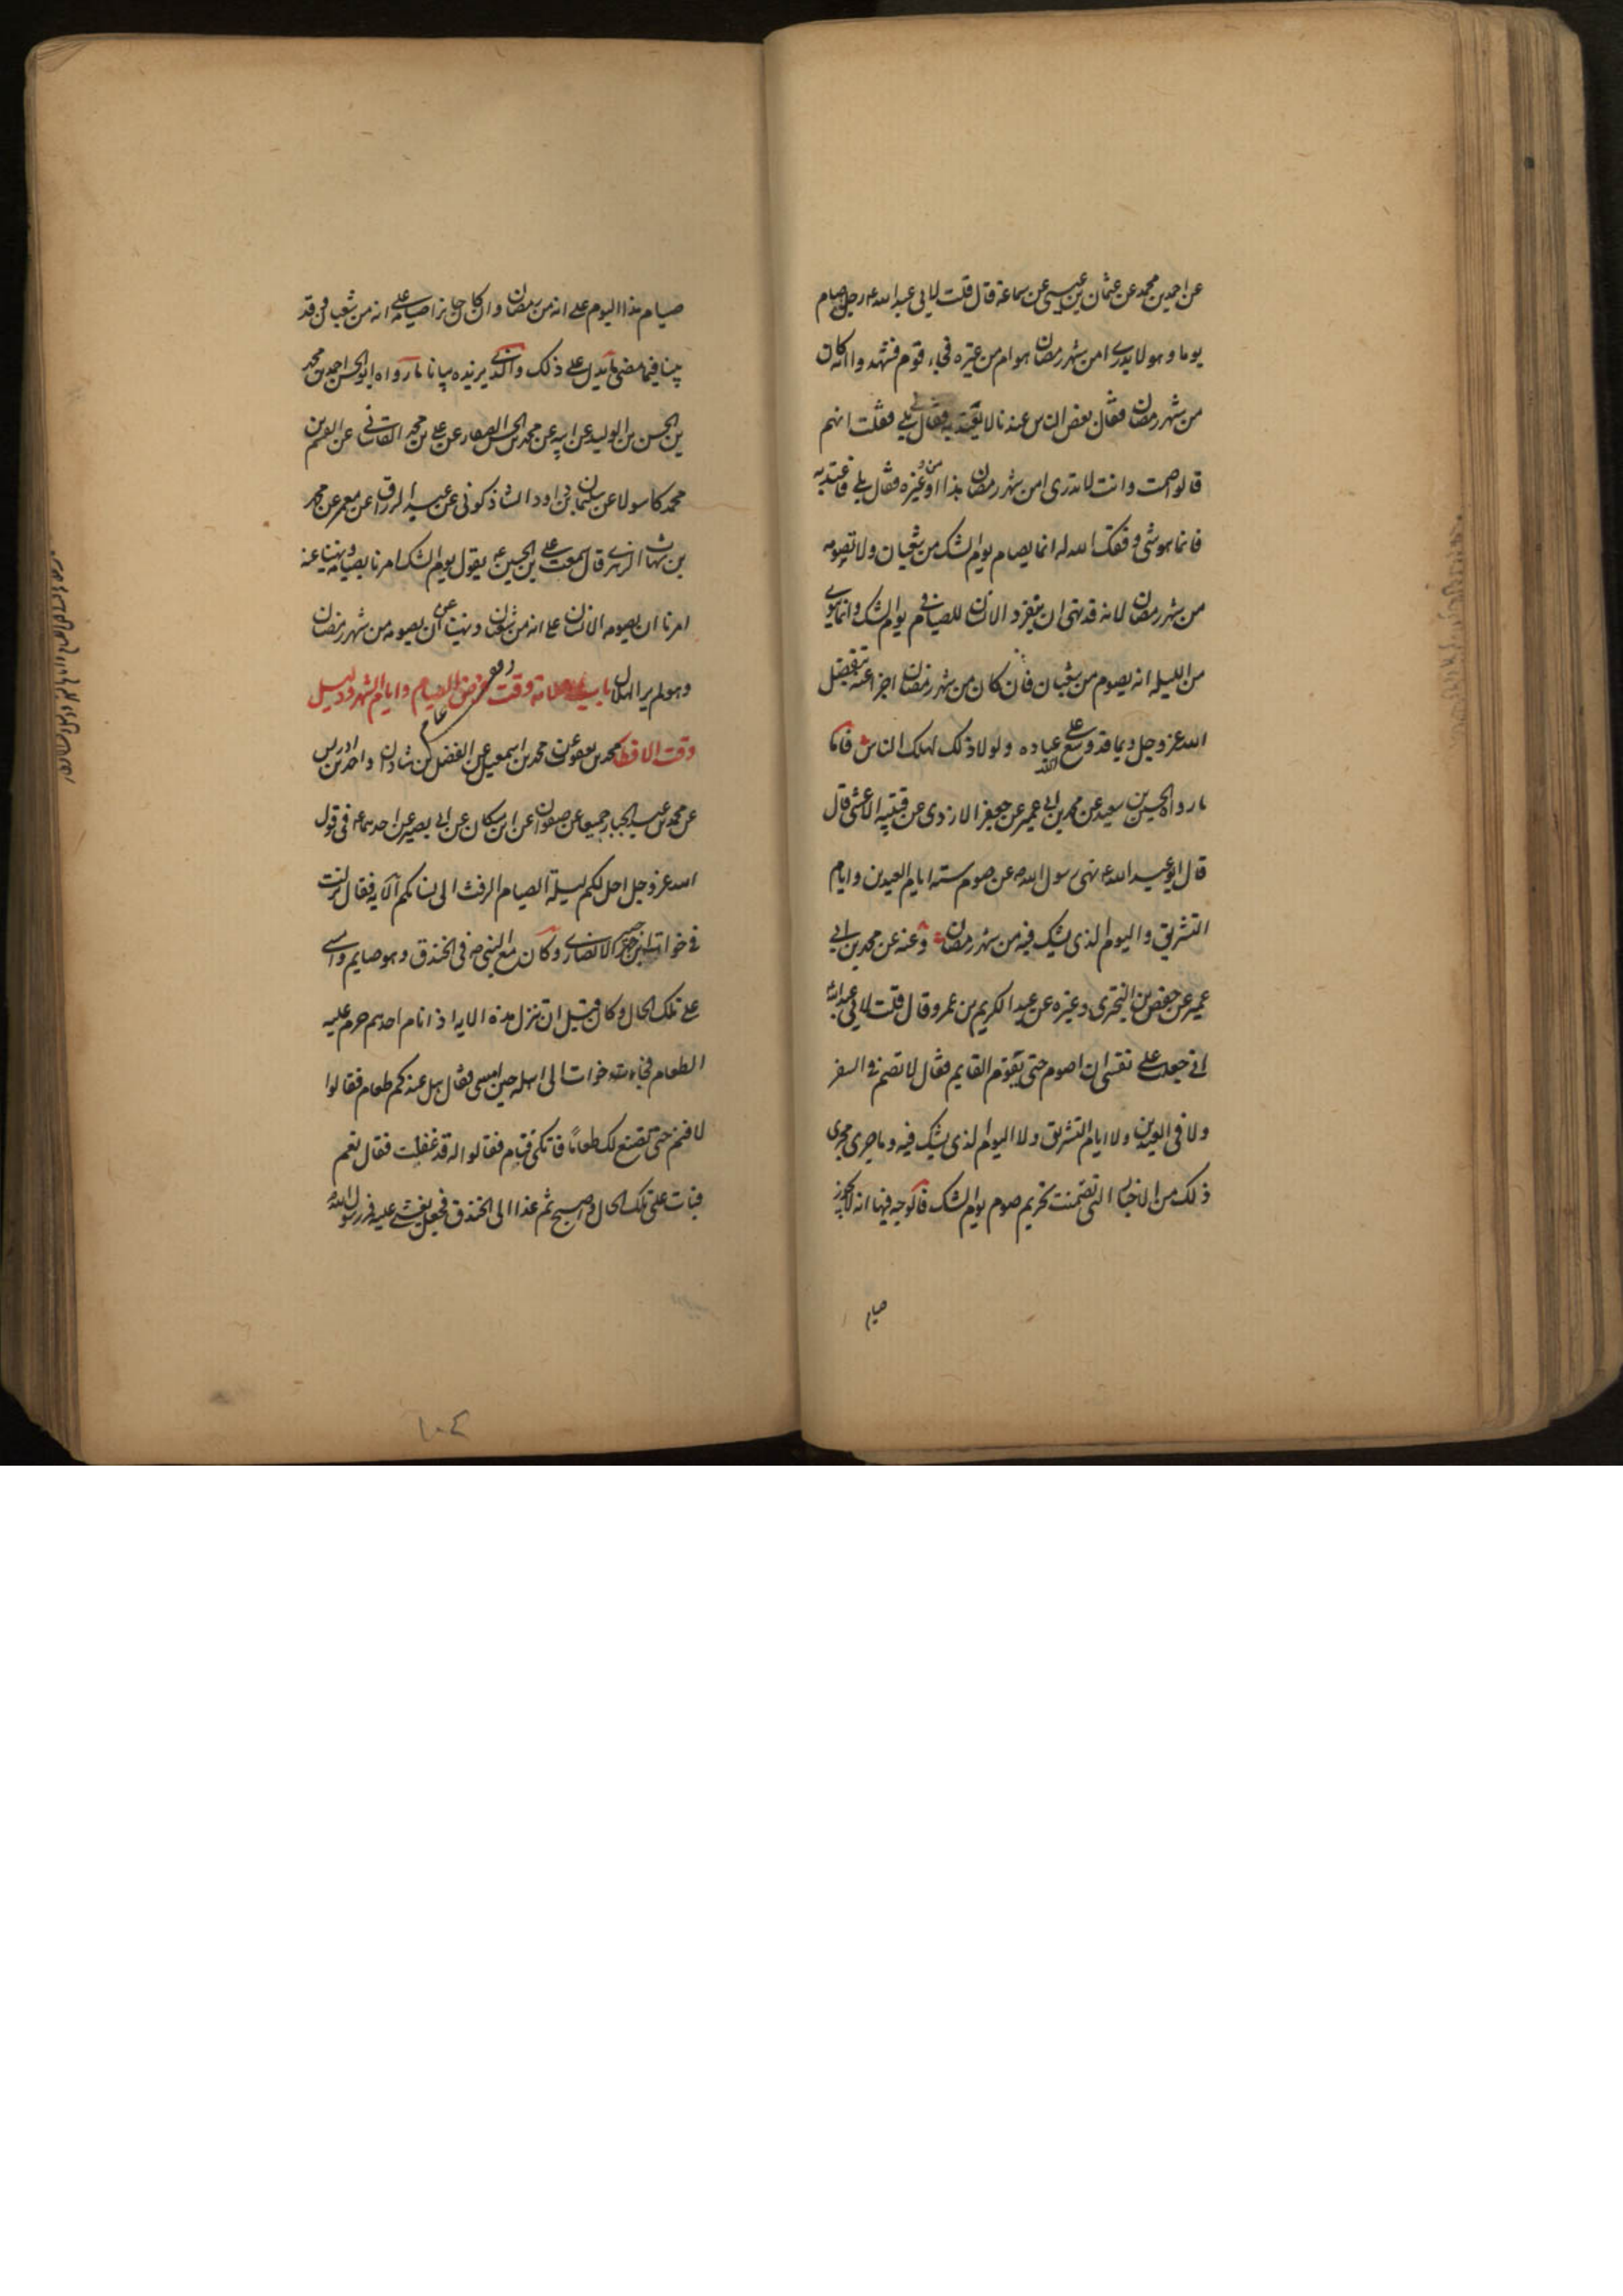 عن احمد بن محمد عن عثمان بن عيسى عن سماعة قال قلت لابي عبد الله ع رجل صام
يوما وهو لا يدرى امن شهر رمضان هو ام من غيره فجاء قوم فشهدوا انه كان
من شهر رمضان فقال بعض الناس عندنا لا يعتد به فقال لى بلى فقلت انهم
قالوا صمت وانت لا تدرى امن شهر رمضان هذا او من غيره فقال بلى فاعتد به
فانما هو شى وفقك الله له انما يصام يوم الشك من شعبان ولا تصومه
من شهر رمضان لانه قد نهى ان ينفرد الانسان للصيام فى يوم الشك وانما ينوى
من الليلة انه يصوم من شعبان فان كان من شهر رمضان اجزا عنه بتفضل
الله عز وجل وبما قد وسع الله على عباده ولولا ذلك لهلك الناس فاما
ما رواه الحسين بن سعيد عن محمد بن ابى عمير عن جعفر الازدى عن قتيبه الاعشى قال
قال ابو عبد الله ع نهى رسول الله ص عن صوم ستة ايام العيدين وايام
التشريق واليوم الذى يشك فيه من شهر رمضان وعنه عن محمد بن ابى
عمير عن حفص بن البخترى وغيره عن عبد الكريم بن عمرو قال قلت لابى عبد الله
انى جعلت على نفسى ان اصوم حتى يقوم القايم فقال لا تصم فى السفر
ولا فى العيدين ولا ايام التشريق ولا اليوم الذى يشك فيه وما جرى مجرى
ذلك من الاخبار التى تضمنت تحريم صوم يوم الشك فالوجه فيها انه لا يجوز
صيام
صيام هذا اليوم على انه من رمضان وان كان جايزا صيامه على انه من شعبان وقد
بينا فيما مضى ما يدل على ذلك والذى يزيده بيانا ما رواه ابو الحسن احمد بن محمد
بن الحسن بن الوليد عن ابيه عن محمد بن الحسن الصفار عن على بن محمد القاسانى عن القسم بن
محمد كاسولا عن سليمان بن داود الشاذكونى عن عبد الرزاق عن معمر عن محمد
بن شهاب الزهرى قال سمعت على بن الحسين ع يقول يوم الشك امرنا بصيامه ونهينا عنه
امرنا ان يصومه الانسان على انه من شعبان ونهينا عن ان يصومه من شهر رمضان
وهو لم ير الهلال باب علامة وقت فرض الصيام وايام الشهر ودليل
وقت الافطار محمد بن يعقوب عن محمد بن اسمعيل عن الفضل بن شاذان واحمد بن ادريس
عن محمد بن عبد الجبار جميعا عن صفوان عن ابن مسكان عن ابى بصير عن احدهما ع فى قول
الله عز وجل احل لكم ليلة الصيام الرفث الى نسائكم الآيه فقال نزلت
فى خوات بن جبير الانصارى وكان مع النبى ص فى الخندق وهو صايم وامسى
على تلك الحال وكان قبل ان تنزل هذه الايه اذا نام احدهم حرم عليه
الطعام فجاءت خوات الى اهله حين امسى فقال هل عندكم طعام فقالوا
لا تنم حتى نصنع لك طعاما فاتكى فنام فقالوا له قد غفلت فقال نعم
فبات على تلك الحال واصبح ثم غدا الى الخندق فجعل يغشى عليه فمر رسول الله